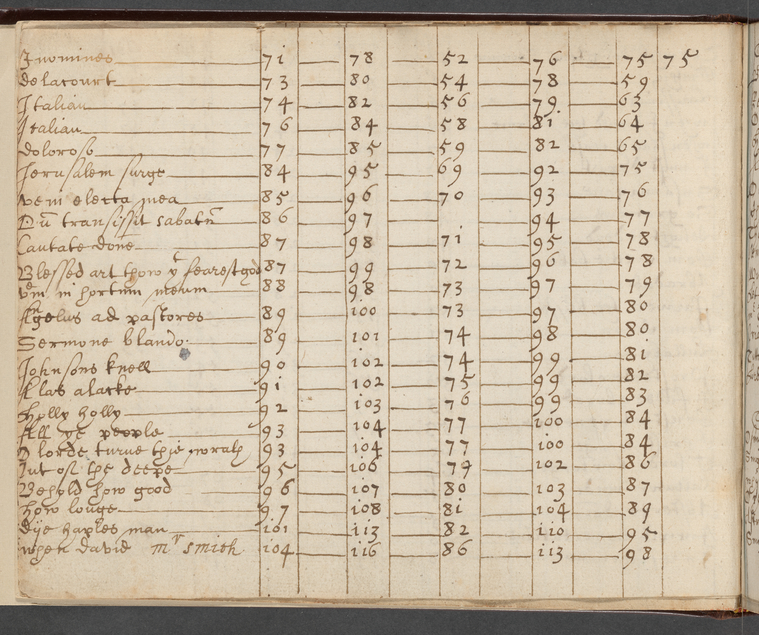 Innomines 71 78 52 76 75 75
delacourt 73 80 54 78 59
Italian 74 82 56 79 63
Italian 76 84 58 81 64
doloroso 77 85 59 82 65
Jerusalem surge 84 95 69 92 75
veni electa mea 85 96 70 93 76
Dū transissit sabatū 86 97 94 77
Cantate dōne 87 98 71 95 78
Blessed art thow yt fearest god 87 99 72 96 78
in hortum meum 88 98 73 97 79
Angelus ad pastores 89 100 73 97 80
Sermone blando 89 101 74 98 80
Johnsons knell 90 102 74 99 81
Alas alacke 91 102 75 99 82
holly holly 92 103 76 99 83
All ye people 93 104 77 100 84
O lorde turne thie wrath 93 104 77 100 84
Out of the deepe 95 106 79 102 86
Behold how good 96 107 80 103 87
how longe 97 108 81 104 89
dye haples man 101 113 82 110 95
when david mr smith 104 116 86 113 98